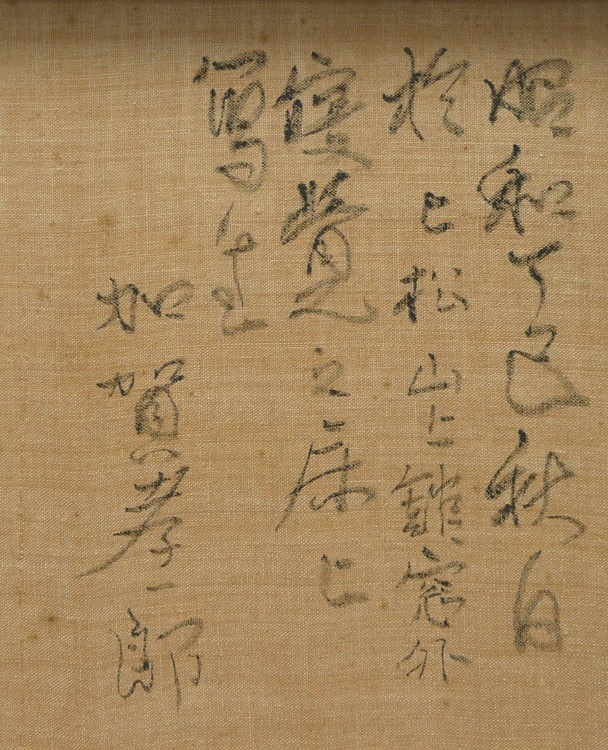 昭和丁巳秋日
於上松山上館窓外
寝覺之床上
寫生
加賀孝一郎